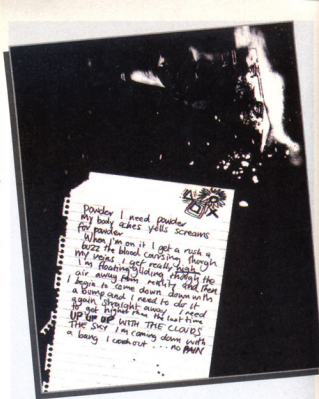 powder I need powder
My body aches yells screams
for powder
When I'm on it I get a rush a
buzz the blood coursing though
my veins I get really high
I'm floating gliding though the
air away from reality and then
I begin to come down down with
a bump and I need to do it
again straight away I need
to get higher than the last time
UP UP UP WITH THE CLOUDS
THE SKY I'm coming down with
a bang I crash out ... no PAIN